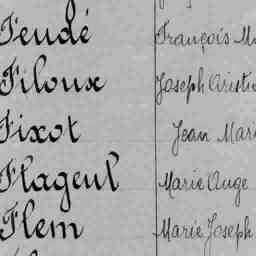 Feudé François
Filoux Joseph Aristi
Fixot Jean Mari
Flageul Marie Ange
Flem Marie Joseph